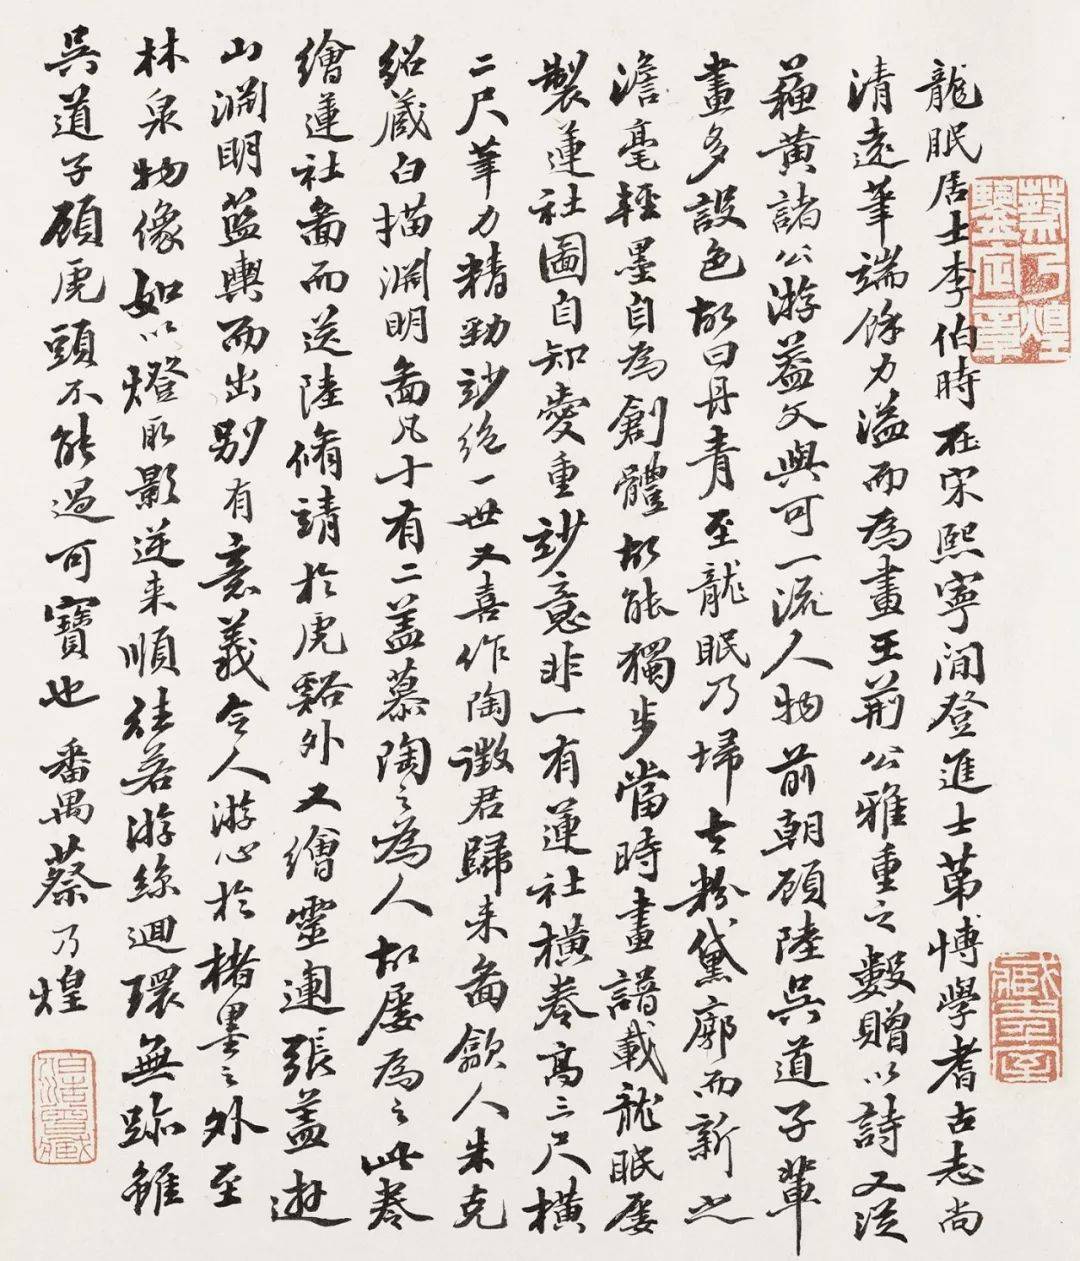 龍眠居士李伯時在宋熙寧間登進士第博學耆古志尚
清遠筆端餘力溢而為畫王荊公雅重之數贈以詩又從
蘇黃諸公游蓋文與可一流人物前朝顧陸吳道子輩
畫多設色故曰丹青至龍眠乃埽去粉黛廓而新之
澹毫輕墨自為創體故能獨步當時畫譜載龍眠屢
製蓮社圖自知愛重玅意非一有蓮社橫卷高二尺橫
二尺筆力精勁玅絕一世又喜作陶徵君歸來圖歙人朱克
紹藏白描淵明圖凡十有二蓋慕陶之為人故屢為之此卷
繪蓮社圖而送陸脩靖於虎谿外又繪靈運張蓋遊
山淵明藍輿而出別有意義令人游心於楮墨之外至
林泉物像如以燈取影逆來順往若游絲迴環無跡雖
吳道子顧虎頭不能過可寶也 番禺蔡乃煌
蔡乃煌鑒定章